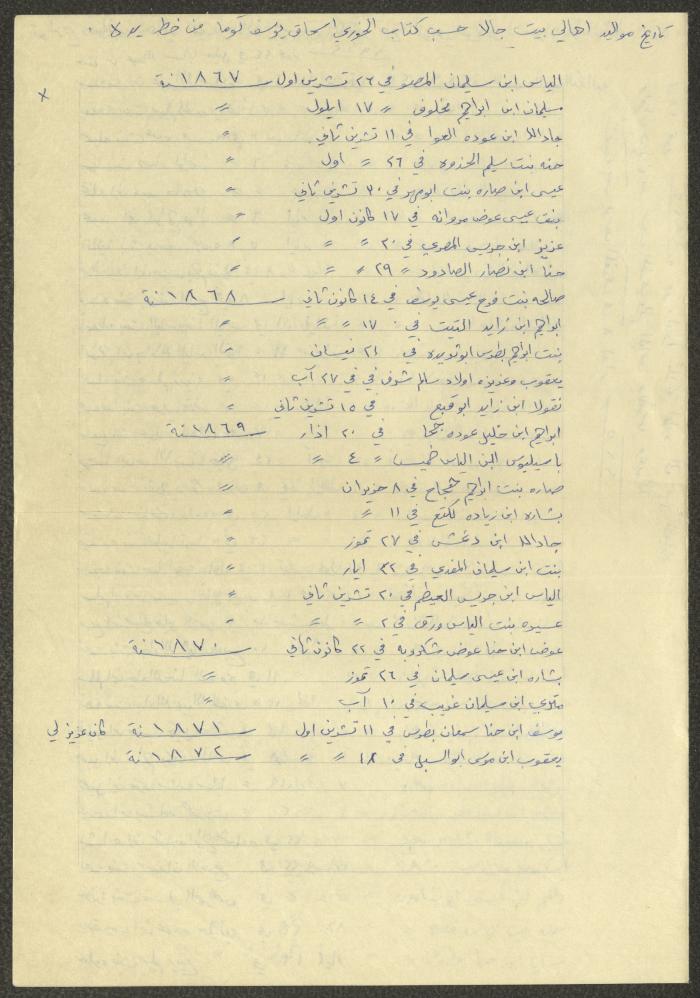 تاريخ مواليد اهالي بيت جالا حسب كتاب الخوري اسحاق يوسف توما من خط يده
الياس ابن سليمان المصو في ٢٦ تشرين اول سنة ١٨٦٧
سليمان ابن ابراهيم مخلوف 〃 ١٧ ايلول 〃
جادالله ابن عوده العوا في ١١ تشرين ثاني 〃
حنه بنت سليم الحذوه في ٢٦ 〃 اول 〃
عيسى ابن صاره بنت ابو مهر في ٣٠ تشرين ثاني 〃
بنت عيسى عوض مروانه في ١٧ كانون اول 〃
عزيز ابن جريس المصري في ٢٠ 〃 〃 〃
حنا ابن نصار الصادود 〃 ٢٩ 〃 〃 〃
صالحه بنت فرح عيسى يوسف في ١٤ كانون ثاني سنة ١٨٦٨
ابراهيم ابن زايد التيت في ١٧ 〃 〃 〃
بنت ابراهيم بطرس ابو ثويده في ٢١ نيسان 〃
يعقوب وعزيزه اولاد سالم شرف في في ٢٧ آب 〃
نقولا ابن زايد ابو قبع في ١٥ تشرين ثاني 〃
ابراهيم ابن خليل عوده جحا في ٢٠ اذار سنة ١٨٦٩
باسيليوس ابن الياس خميس 〃 ٤ 〃 〃
صاره بنت ابراهيم حجاج في ٨ حزيران 〃
بشاره ابن زياده لكتع في ١١ 〃 〃
جادالله ابن دعمش في ٢٧ تموز 〃
بنت ابن سليمان المفدي في ٣٢ ايار 〃
الياس ابن جريس العيطم في ٢٠ تشرين ثاني 〃
عسيده بنت الياس ورق في ٢ 〃 〃 〃
عوض ابن حنا عوض شكرويه في ٢٢ كانون ثاني سنة ١٨٧٠
بشاره ابن عيسى سليمان في ٢٦ تموز 〃
متري ابن سليمان غريب في ١٠ آب 〃
يوسف ابن حنا سمعان بطرس في ١١ تشرين اول سنة ١٨٧١ كان عزيز لي
يعقوب ابن موسى ابو السبل في ١٨ 〃 〃 سنة ١٨٧٢